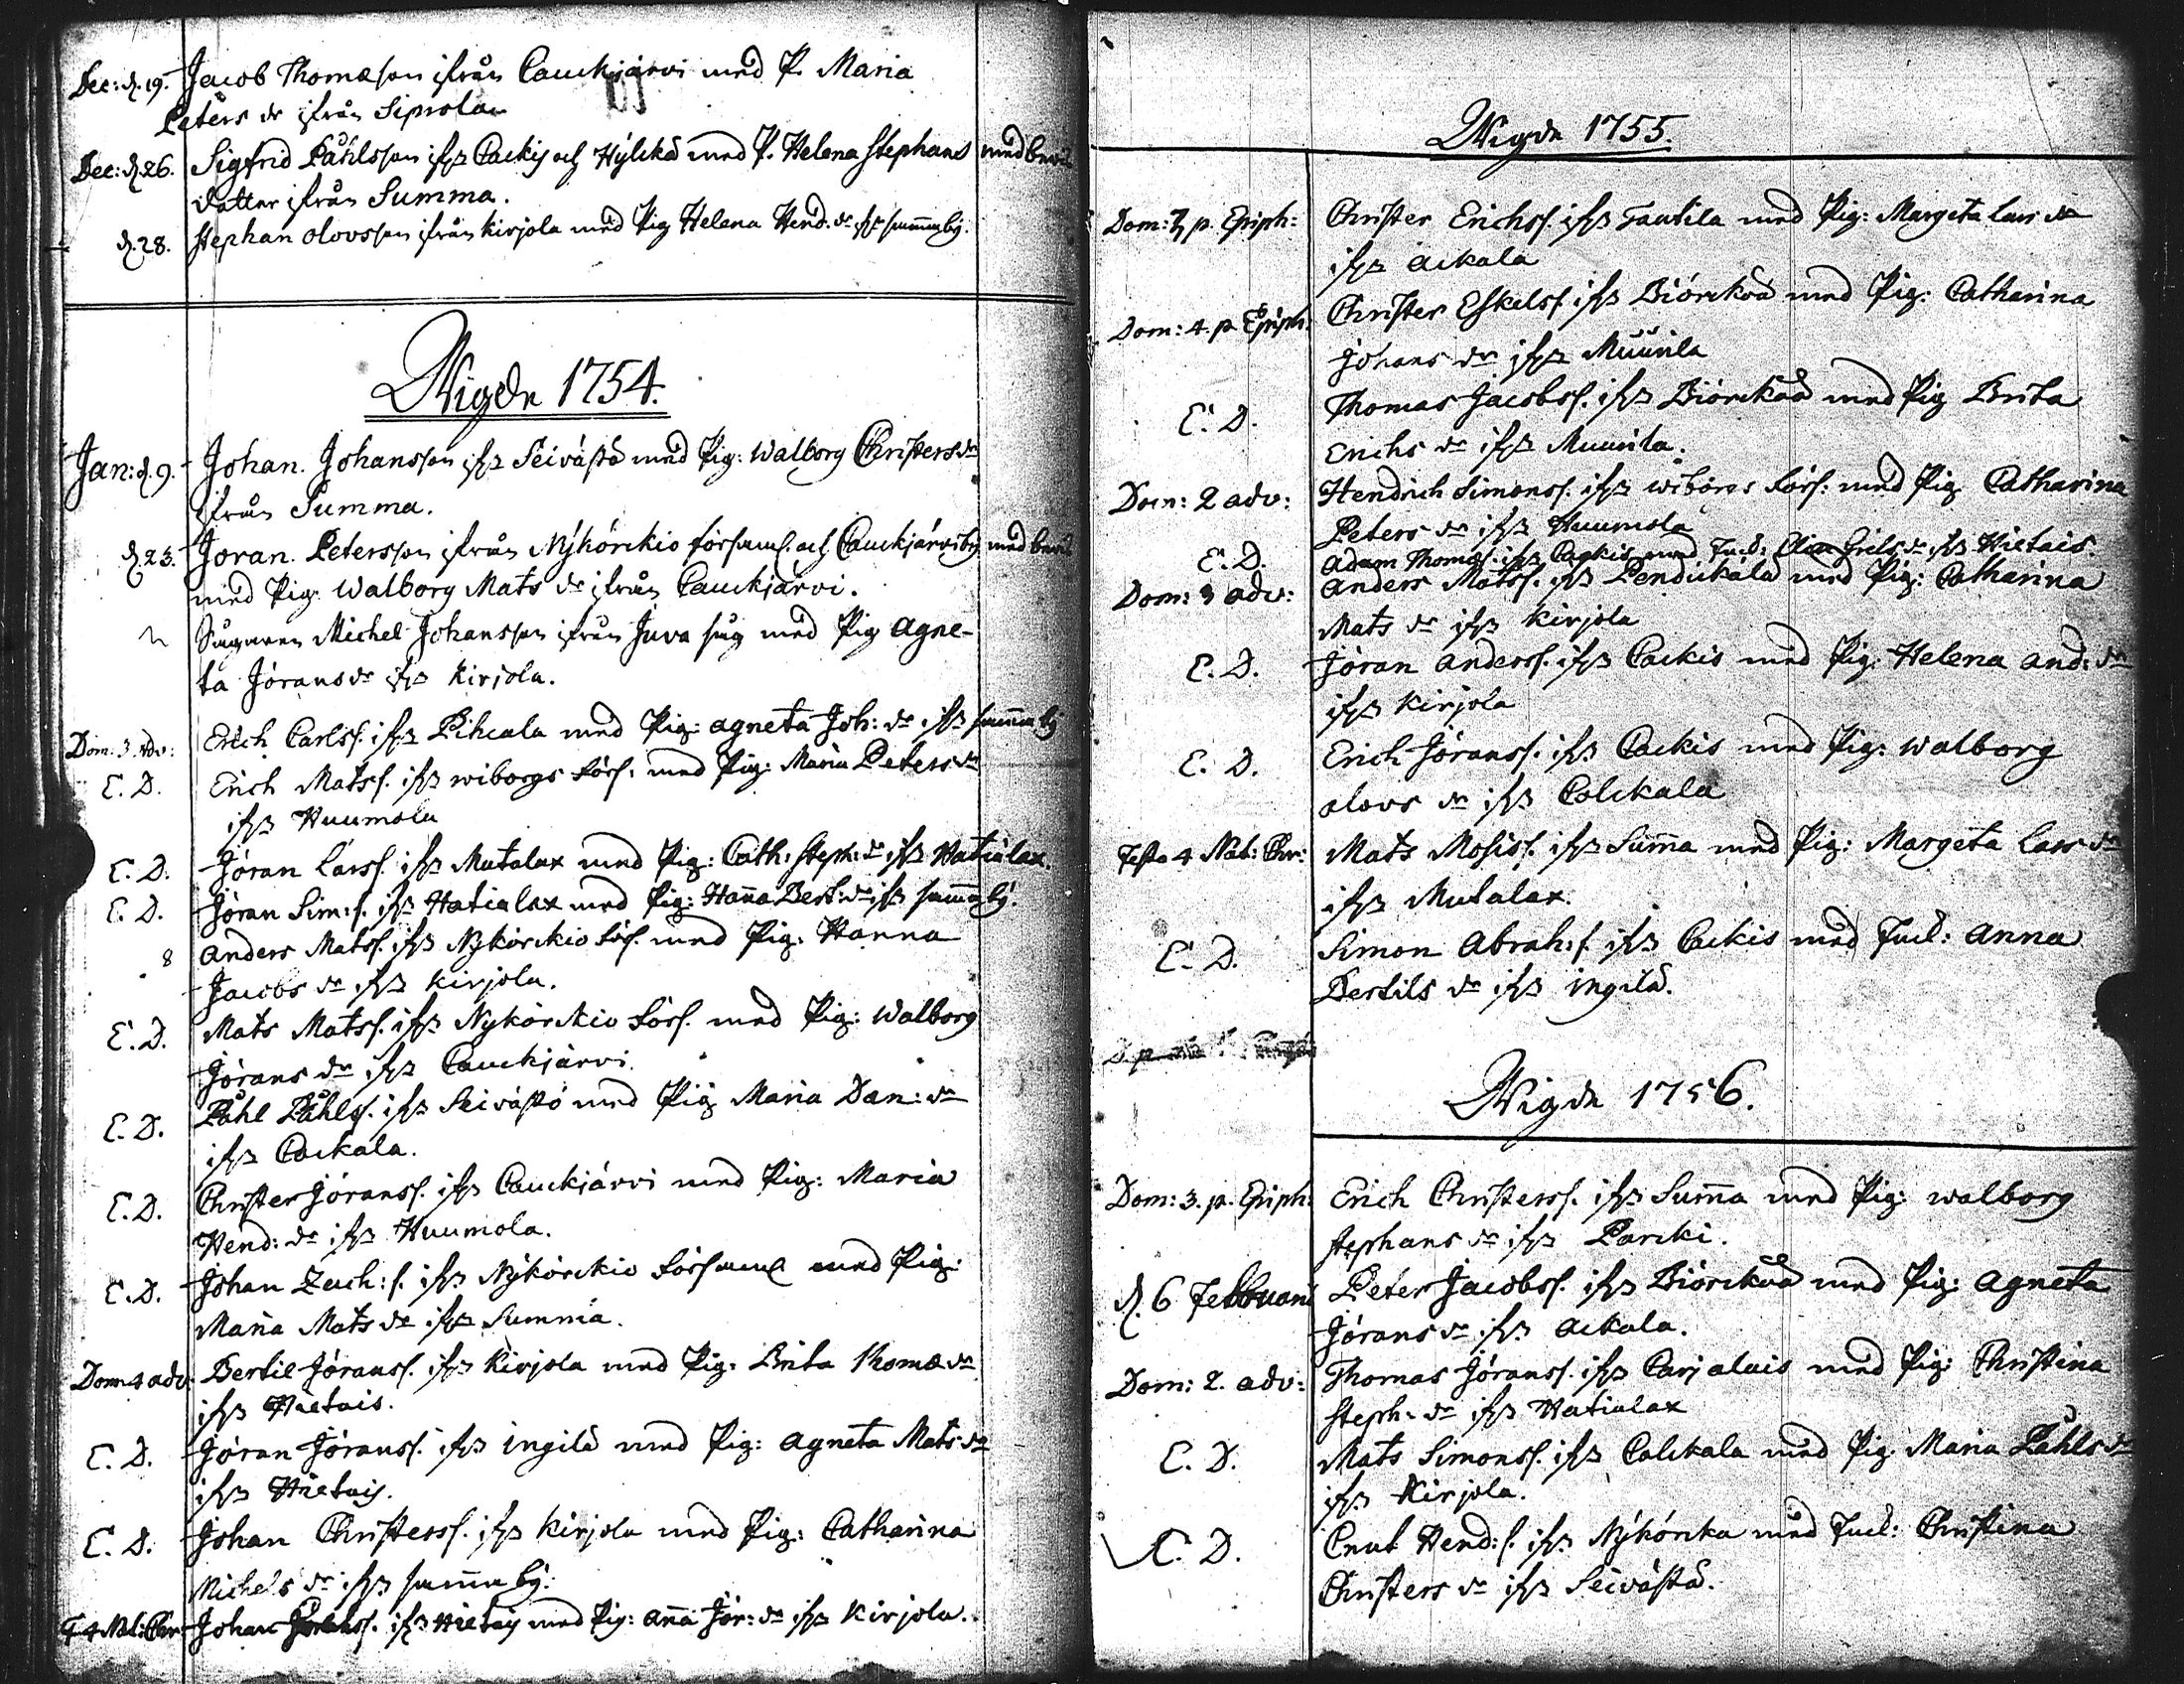 Dec: d. 19. Jacob Thomasson ifrån Cauckjärvi med P. Maria
Peters dr ifrån Siprola
Dec: d. 26. Sigfrid Påhlsson ifr Cackis och Hÿlckä med P. Helena Stephans med bevis
dotter ifrån Summa.
d. 28. Stephan Olovsson ifrån Kirjola med Pig Helena Hend. dr ifr samma bÿ.
Wigde 1754.
Jan: d. 9. Johan Johansson ifr Seivästö med Pig: Walborg Christers dr
ifrån Summa.
d. 23. Jöran Petersson ifrån Nÿkörckio församl. och Cauckjärvi by med bevis
med Pig. Walborg Mats dr ifrån Cauckjärvi.
Sugaren Michel Johansson ifrån Juva såg med Pig Agne-
ta Jörans dr ifr Kirjola.
Dom: 3. Adv: Erich Carlss. ifr Pihcala med Pig: Agneta Joh: dr ifr samma bÿ
E. D. Erich Matss. ifr Wiborgs Förs: med Pig: Maria Peters dr
ifr Huumola
E. D. Jöran Larss. ifr Mutalax med Pig: Cath: Steph: dr ifr Hatialax.
E. D. Jöran Sim: s. ifr Hatialax med Pig: Hanna Bert: dr ifr samma bÿ.
8 Anders Matss. ifr Nÿkörckio Förs. med Pig: Hanna
Jacobs dr ifr Kirjola.
E. D. Mats Matss. ifr Nykörckio Förs. med Pig: Walborg
Jörans dr ifr Cauckjärvi.
E. D. Påhl Påhlss. ifr Seivästö med Pig Maria Dan: dr
ifr Cackala.
E. D. Christer Jöranss. ifr Cauckjärvi med Pig: Maria
Hend: dr ifr Huumola.
E. D. Johan Zach: s. ifr Nÿkörckio Församl med Pig:
Maria Mats dr ifr Summa.
Dom: 4 adv. Bertil Jöranss. ifr Kirjola med Pig: Brita Thomæ dr
ifr Hietais.
E. D. Jöran Jöranss. ifr Ingilä med Pig: Agneta Mats dr
ifr Hietais.
E. D. Johan Christerss. ifr Kirjola med Pig: Catharina
Michels dr ifr samma bÿ.
F 4 Nat: Chr: Johan ifr Hietais med Pig: Anna Jör: dr ifr Kirjola.
Wigde 1755.
Dom: 3 p. Epiph: Christer Erichss. ifr Tautila med Pig: Margeta Lars dr
ifr Ackala
Dom: 4. p. Epiph: Christer Eskelss. ifr Biörckoä med Pig: Catharina
Johans dr ifr Muurila
E. D. Thomas Jacobss. ifr Biörckoä med Pig Brita
Erichs dr ifr Muurila.
Dom: 2 adv: Hendrich Simonss. ifr Wiborgs Förs: med Pig Catharina
Peters dr ifr Huumola
E. D. Adam Thomæs: ifr Cackis med Encl: Grels dr ifr Hietais
Dom: 3 adv: Anders Matss. ifr Pendickälä med Pig: Catharina
Mats dr ifr Kirjola
E. D. Jöran Anderss. ifr Cackis med Pig: Helena And: dr
ifr Kirjola
E. D. Erich Jöranss. ifr Cackis med Pig: Walborg
Olovs dr ifr Colckala
Festo 4 Nat: Chr: Mats Mosiss. ifr Summa med Pig: Margeta Lars dr
ifr Mutalax.
E. D. Simon Abrah: s. ifr Cackis med Encl: Anna
Bertils dr ifr Ingilä.
Wigde 1756.
Dom: 3. p. Epiph: Erich Christerss. ifr Summa med Pig: Walborg
Stephans dr ifr Parcki.
d. 6 Februarii Peter Jacobss. ifr Biörckoä med Pig: Agneta
Jörans dr ifr Ackala.
Dom: 2. adv: Thomas Jöranss. ifr Carjalais med Pig: Christina
Steph: dr ifr Hatialax
E. D. Mats Simonss. ifr Colckala med Pig Maria Påhls dr
ifr Kirjola.
E. D. Cnut Hend: s. ifr Nÿkörcka med Encl: Christina
Christers dr ifr Seivästö.